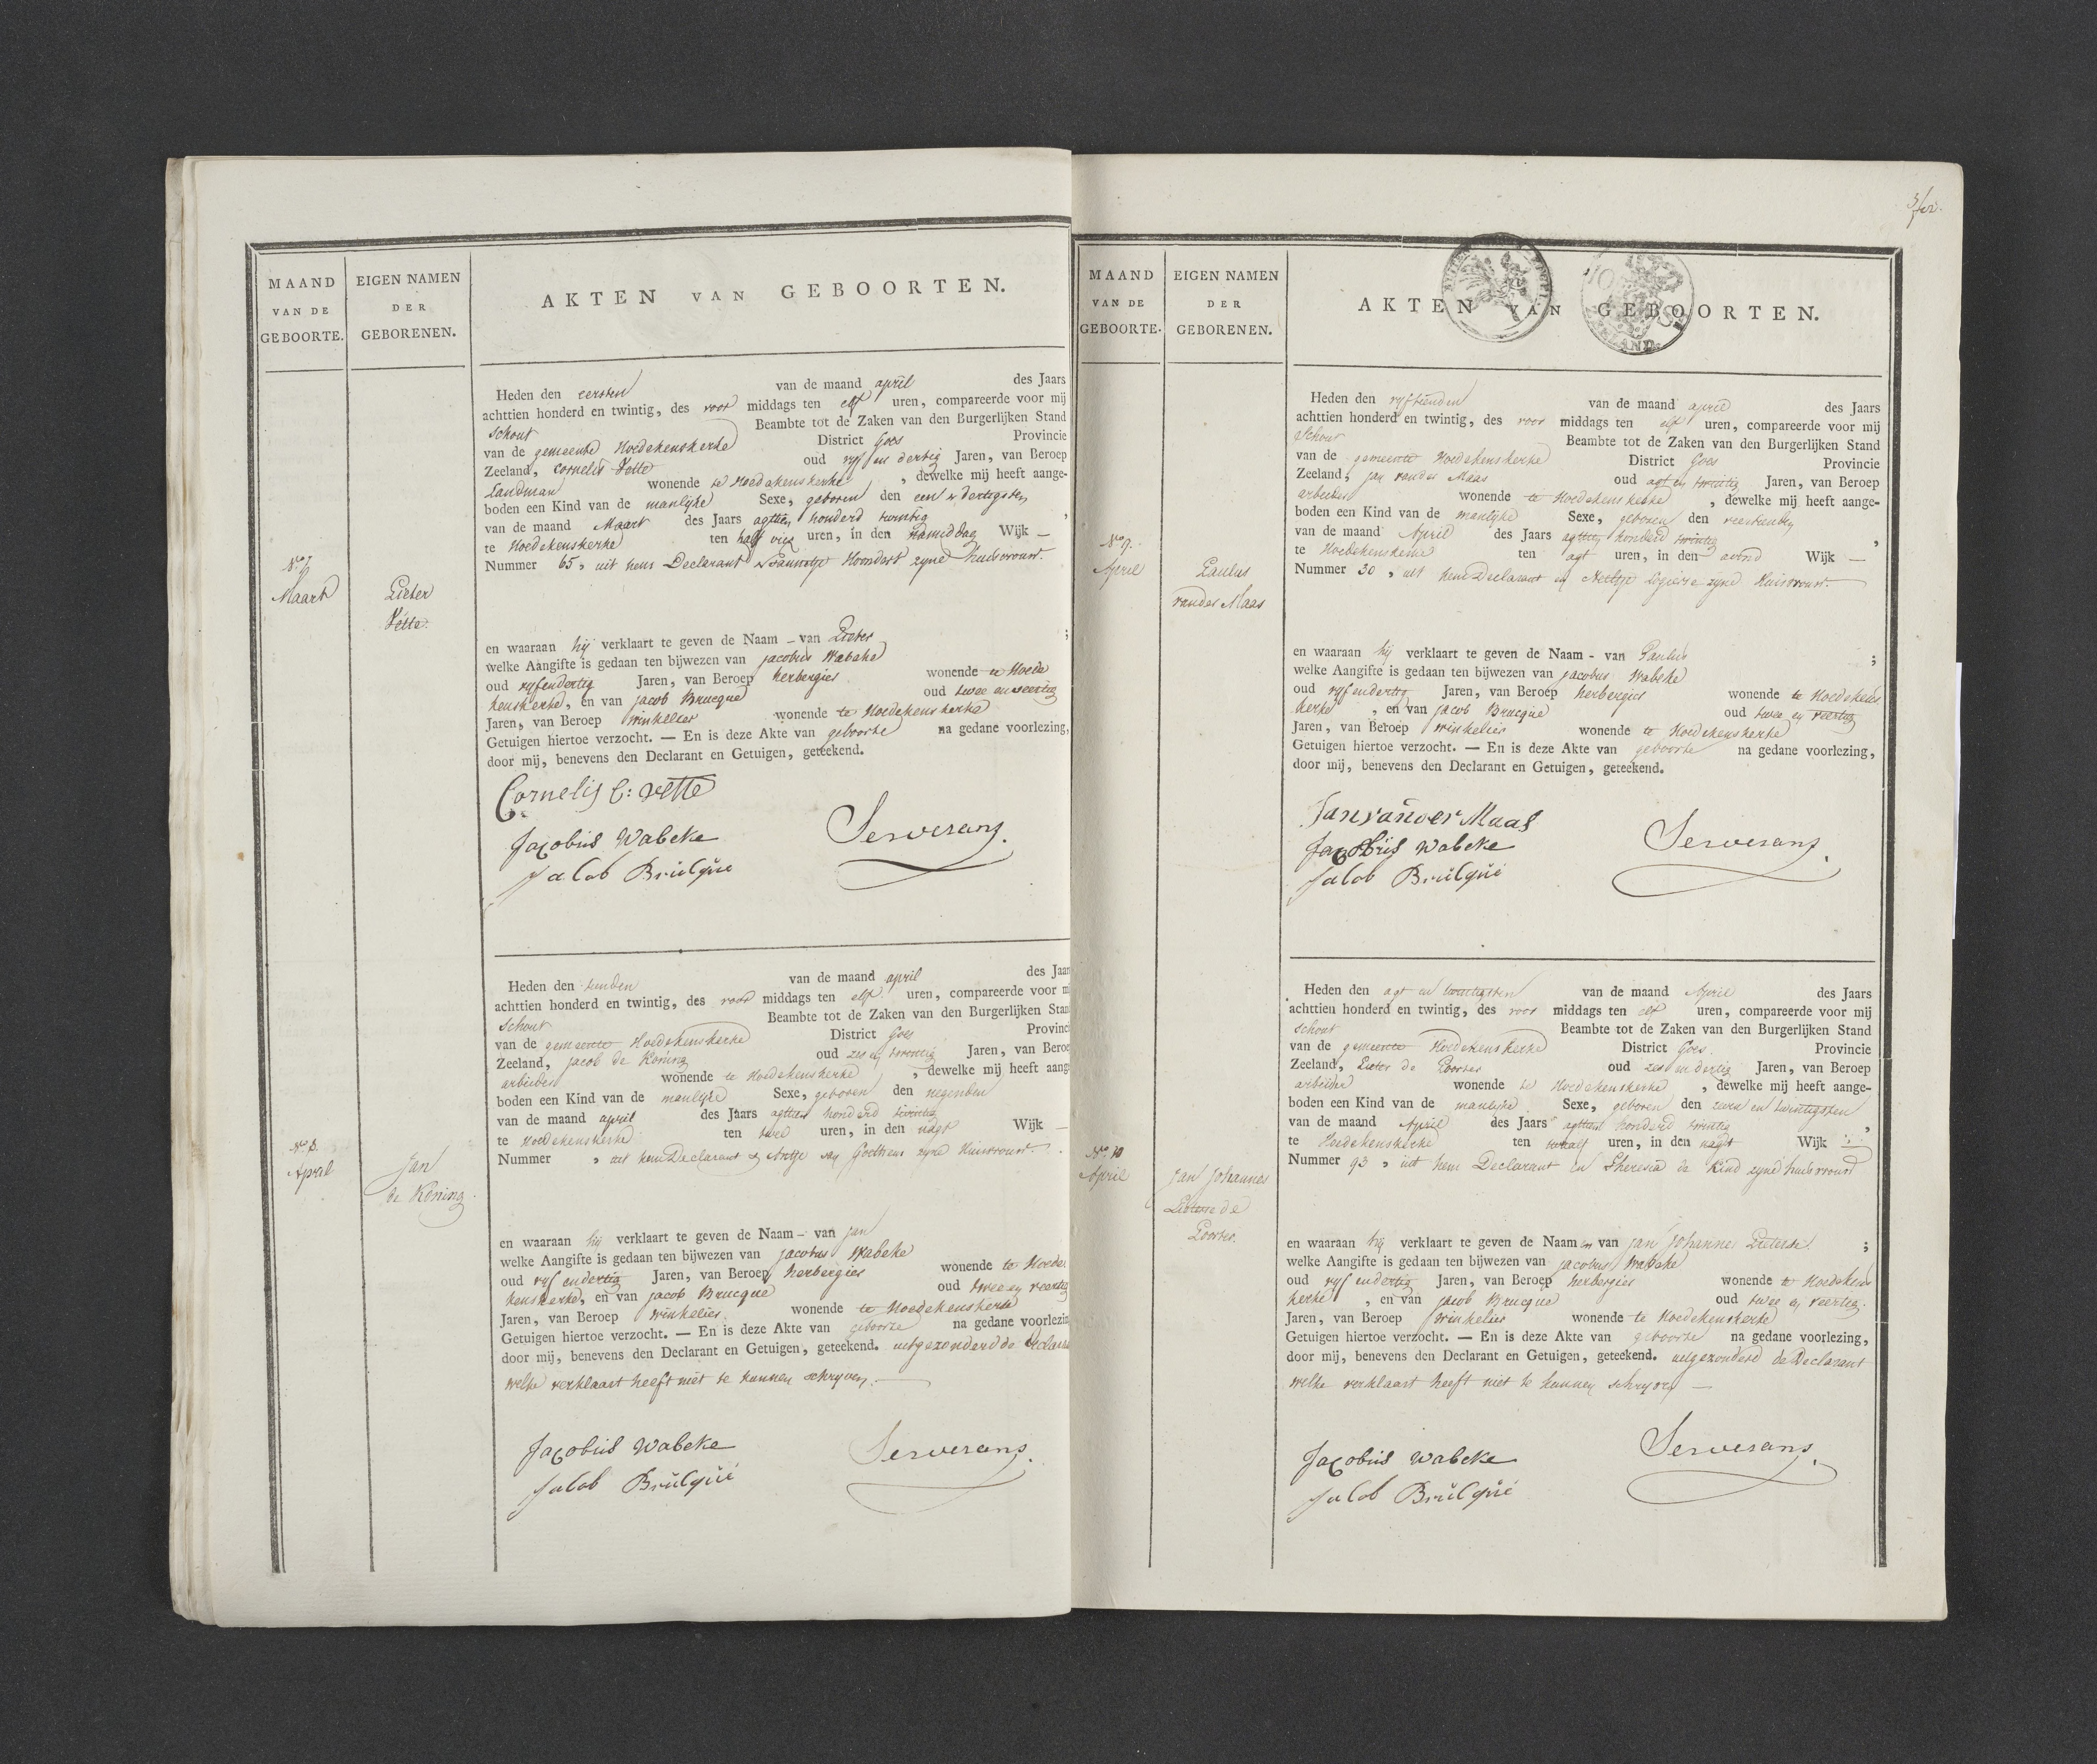 MAAND
VAN DE
GEBOORTE.
EIGEN NAMEN
DER
GEBORENEN.
AKTEN VAN GEBOORTEN.
No 7
Maart
Pieter
Vette.
Heden den eersten van de maand april des Jaars
achttien honderd en twintig, des voor middags ten elf uren, compareerde voor mij
Schout Beambte tot de Zaken van den Burgerlijken Stand
van de gemeente Hoedekenskerke District Goes Provincie
Zeeland, Cornelis Vette oud vyf en dertig Jaren, van Beroep
Landman wonende te Hoedekenskerke, dewelke mij heeft aange-
boden een Kind van de manlyke Sexe, geboren den een en dertigsten
van de maand Maart des Jaars agttien honderd twintig,
te Hoedekenskerke ten half vier uren, in den namiddag Wijk —
Nummer 65, uit hem Declarant & Pauwelje Hoondert zyne huisvrouw.
en waaraan hij verklaart te geven de Naam - van Pieter;
welke Aangifte is gedaan ten bijwezen van jacobus Wabeke
oud vyfendertig Jaren, van Beroep herbergier wonende te Hoede
kenskerke, en van jacob Brucque oud twee en veertig
Jaren, van Beroep Winkelier wonende te Hoedekenskerke
Getuigen hiertoe verzocht. — En is deze Akte van geboorte na gedane voorlezing,
door mij, benevens den Declarant en Getuigen, geteekend.
Cornelis C: vette
Jacobus Wabeke
Jacob Brucque
Serverans.
No 8.
April
Jan
de Koning.
Heden den tienden van de maand april des Jaar
achttien honderd en twintig, des voor middags ten elf uren, compareerde voor m
Schout Beambte tot de Zaken van den Burgerlijken Stan
van de gemeente Hoedekenskerke District Goes Provinc
Zeeland, jacob de Koning oud zes en twintig Jaren, van Beroe
arbeider wonende te Hoedekenskerke, dewelke mij heeft aang
boden een Kind van de manlyke Sexe, geboren den negenden
van de maand april des Jaars agttien honderd twintig
te Hoedekenskerke ten twee uren, in den nagt Wijk —
Nummer , uit hem Declarant & Antje van Goethem zyne Huisvrouw.
en waaraan hij verklaart te geven de Naam - van jan
welke Aangifte is gedaan ten bijwezen van jacobus Wabeke
oud vyf endertig Jaren, van Beroep herbergier wonende te Hoede
kenskerke, en van jacob Brucque oud twee en veertig
Jaren, van Beroep Winkelier. wonende te Hoedekenskerke
Getuigen hiertoe verzocht. — En is deze Akte van geboorte na gedane voorlezin
door mij, benevens den Declarant en Getuigen, geteekend. uitgezonderd de declara
welke verklaart heeft niet te kunnen schryven. —
Jacobus Wabeke
Jacob Brucque
Serverans.
MAAND
VAN DE
GEBOORTE.
EIGEN NAMEN
DER
GEBORENEN.
AKTEN VAN GEBOORTEN.
ZEELAND.
No 9.
April
Paulus
vander Maas
Heden den vyftienden van de maand april des Jaars
achttien honderd en twintig, des voor middags ten elf uren, compareerde voor mij
Schout Beambte tot de Zaken van den Burgerlijken Stand
van de gemeente Hoedekenskerke District Goes Provincie
Zeeland, jan vander Maas oud agt en twintig Jaren, van Beroep
arbeider wonende te Hoedekenskerke, dewelke mij heeft aange-
boden een Kind van de manlyke Sexe, geboren den veertienden
van de maand April des Jaars agttien honderd twintig,
te Hoedekenskerke ten agt uren, in den avond Wijk —
Nummer 30, uit hem Declarant en Neeltje zyne Huisvrouw. —
en waaraan hij verklaart te geven de Naam - van Paulus;
welke Aangifte is gedaan ten bijwezen van jacobus Wabeke
oud vyfendertig Jaren, van Beroep herbergier wonende te Hoedekens
kerke, en van jacob Brucque oud twee en veertig
Jaren, van Beroep winkelier wonende te Hoedekenskerke
Getuigen hiertoe verzocht. — En is deze Akte van geboorte na gedane voorlezing,
door mij, benevens den Declarant en Getuigen, geteekend.
Jan vander Maas
Jacobus Wabeke
Jacob Brucque
Serverans.
No 10
April
Jan Johannes
Pieterse de
Poorter.
Heden den agt en twintigsten van de maand April des Jaars
achttien honderd en twintig, des voor middags ten elf uren, compareerde voor mij
Schout Beambte tot de Zaken van den Burgerlijken Stand
van de gemeente Hoedekenskerke District Goes. Provincie
Zeeland, Pieter de Poorter oud zes en dertig Jaren, van Beroep
arbeider wonende te Hoedekenskerke, dewelke mij heeft aange-
boden een Kind van de manlyke Sexe, geboren den zeven en twintigsten
van de maand April des Jaars agttien honderd twintig,
te Hoedekenskerke ten twaalf uren, in den nagt Wijk
Nummer 93, uit hem Declarant en Theresia de Kind zyne huisvrouw
en waaraan hij verklaart te geven de Naam en van jan johannes Pieterse.;
welke Aangifte is gedaan ten bijwezen van jacobus Wabeke
oud vyf endertig Jaren, van Beroep herbergier wonende te Hoedekens
kerke, en van jacob Brucque oud twee en veertig.
Jaren, van Beroep Winkelier wonende te Hoedekenskerke
Getuigen hiertoe verzocht. — En is deze Akte van geboorte na gedane voorlezing,
door mij, benevens den Declarant en Getuigen, geteekend. uitgezonderd de Declarant
welke verklaart heeft niet te kunnen schryven —
Jacobus Wabeke
Jacob Brucque
Serverans.